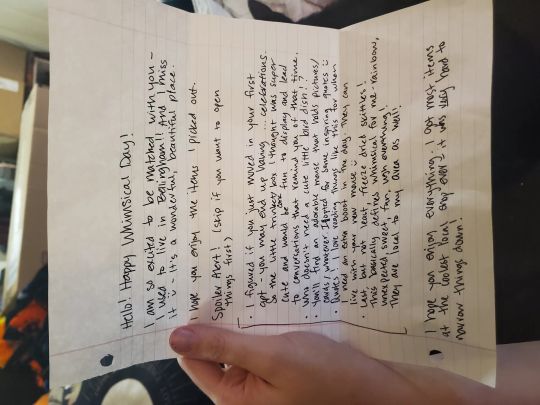 Hello! Happy Whimsical Day!
I am so excited to be matched with you -
I used to live in Bellingham!! And I miss
it :) - it's a wonderful, beautiful place.
I hope you enjoy the items I picked out.
Spoiler Alert! (skip if you want to open
things first)
I figured if you just moved in your first
apt - you may end up having ... celebrations.
So the little trinket box I thought was super
cute and would be fun to display and lead
to conversations that remind you of that time.
Who doesn't need a cute little bird dish!?
You'll find an adorable mouse that holds pictures/
cards/whatever. I opted for some inspiring quotes :)
Quotes I love reading things like this for when
I need an extra boost in the day. They can
live with your new mouse :)
Last, but not least, freeze dried skittles!
This basically defines whimsical for me - rainbow,
unexpected, sweet, fun, ugh everything!
They are local to my area as well!
I hope you enjoy everything. I got most items
at the coolest local shop ever & it was very hard to
narrow things down!